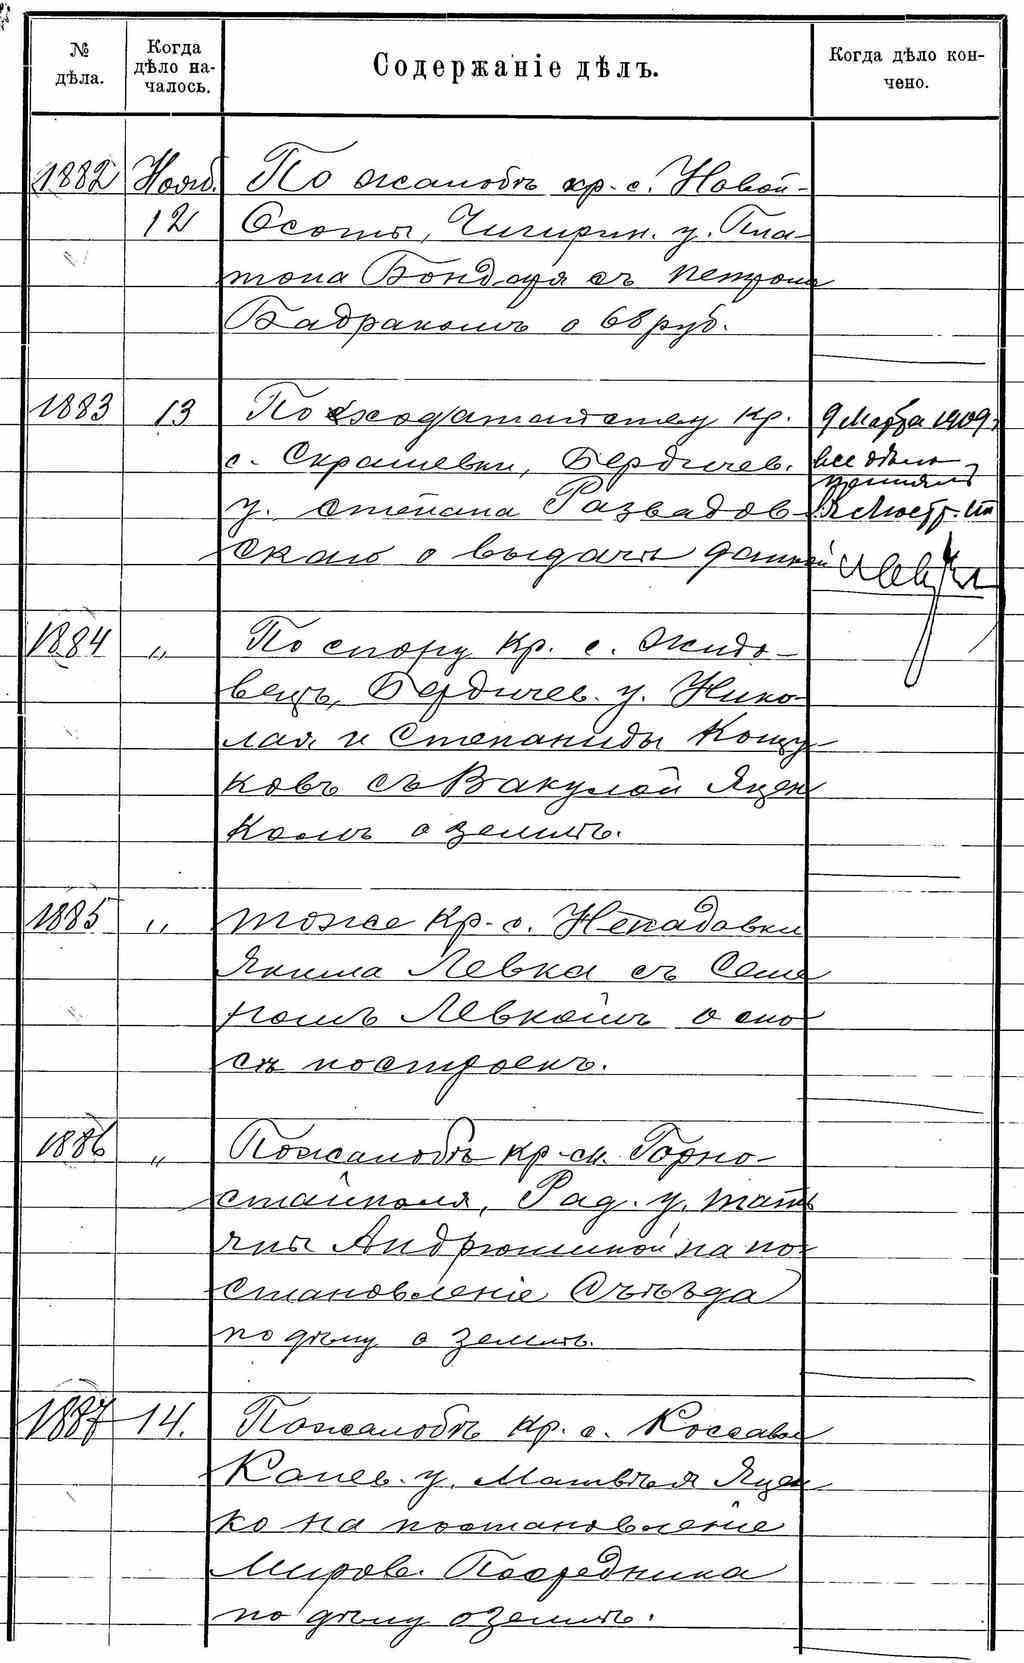 № дѣла.
Когда дѣло на-
чалось.
Содержаніе дѣлъ.
Когда дѣло кон-
чено.
1882 Нояб. По жалобѣ кр. с. Новой-
12 Осоты, Чигирин. у. Пла-
тона Бондаря съ Петромъ
Бадракомъ о 68 руб.
1883 13 По ходатайству кр. 9 Марта 1909 г.
с. Скрашевки, Бердичев. все дѣло
у. Степана Развадов-
скаго о выдачѣ данной
1884 " По спору кр. с. Жидо-
вецъ, Бердичев. у. Нико-
лая и Степаниды Кощу-
ковъ съ Вакулой Яцен
комъ о землѣ.
1885 " тоже кр. с. Непадовки
Якима Левка съ Семе
номъ Левкомъ о сно-
сѣ построекъ.
1886 " По жалобѣ кр-ки м. Горно-
стайполя, Рад. у. Тать
яны Андрюшиной на по-
становленіе Съѣзда
по дѣлу о землѣ.
1887 14. По жалобѣ кр. с. Коссавы
Канев. у. Матвѣя Яцен
ко на постановленіе
Миров. Посредника
по дѣлу о землѣ.